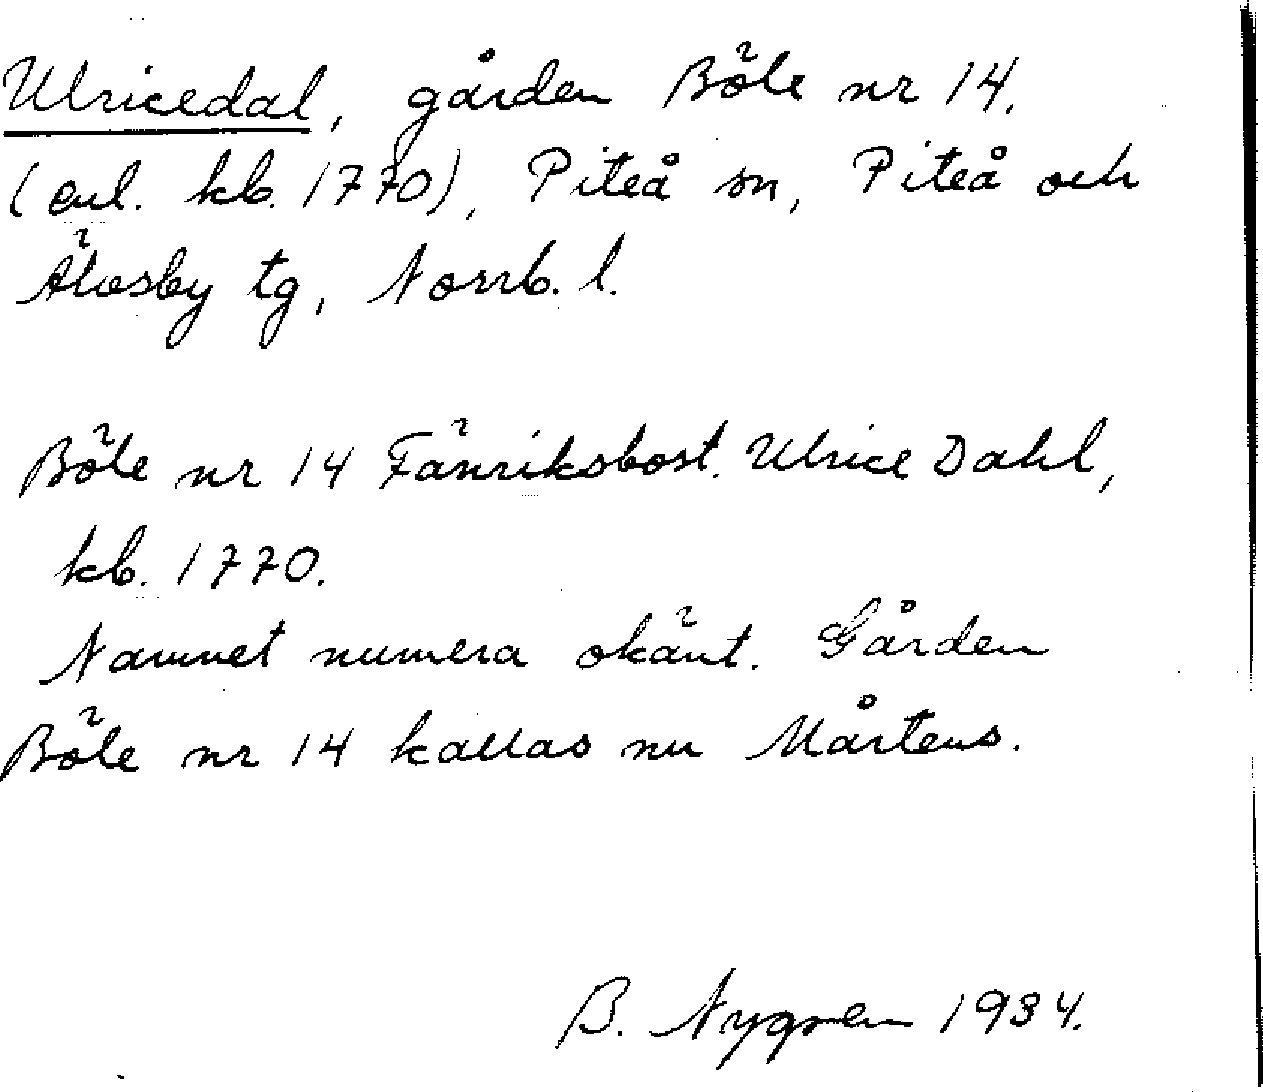 Ulricedal, gården Böle nr 14.
(enl. kb. 1770), Piteå sn, Piteå och
Älvsby tg, Norrb. l.
Böle nr 14 Fänriksbost. Ulrice Dahl,
kb. 1770.
Namnet numera okänt. Gården
Böle nr 14 kallas nu Mårtens.
B. Nygren 1934.